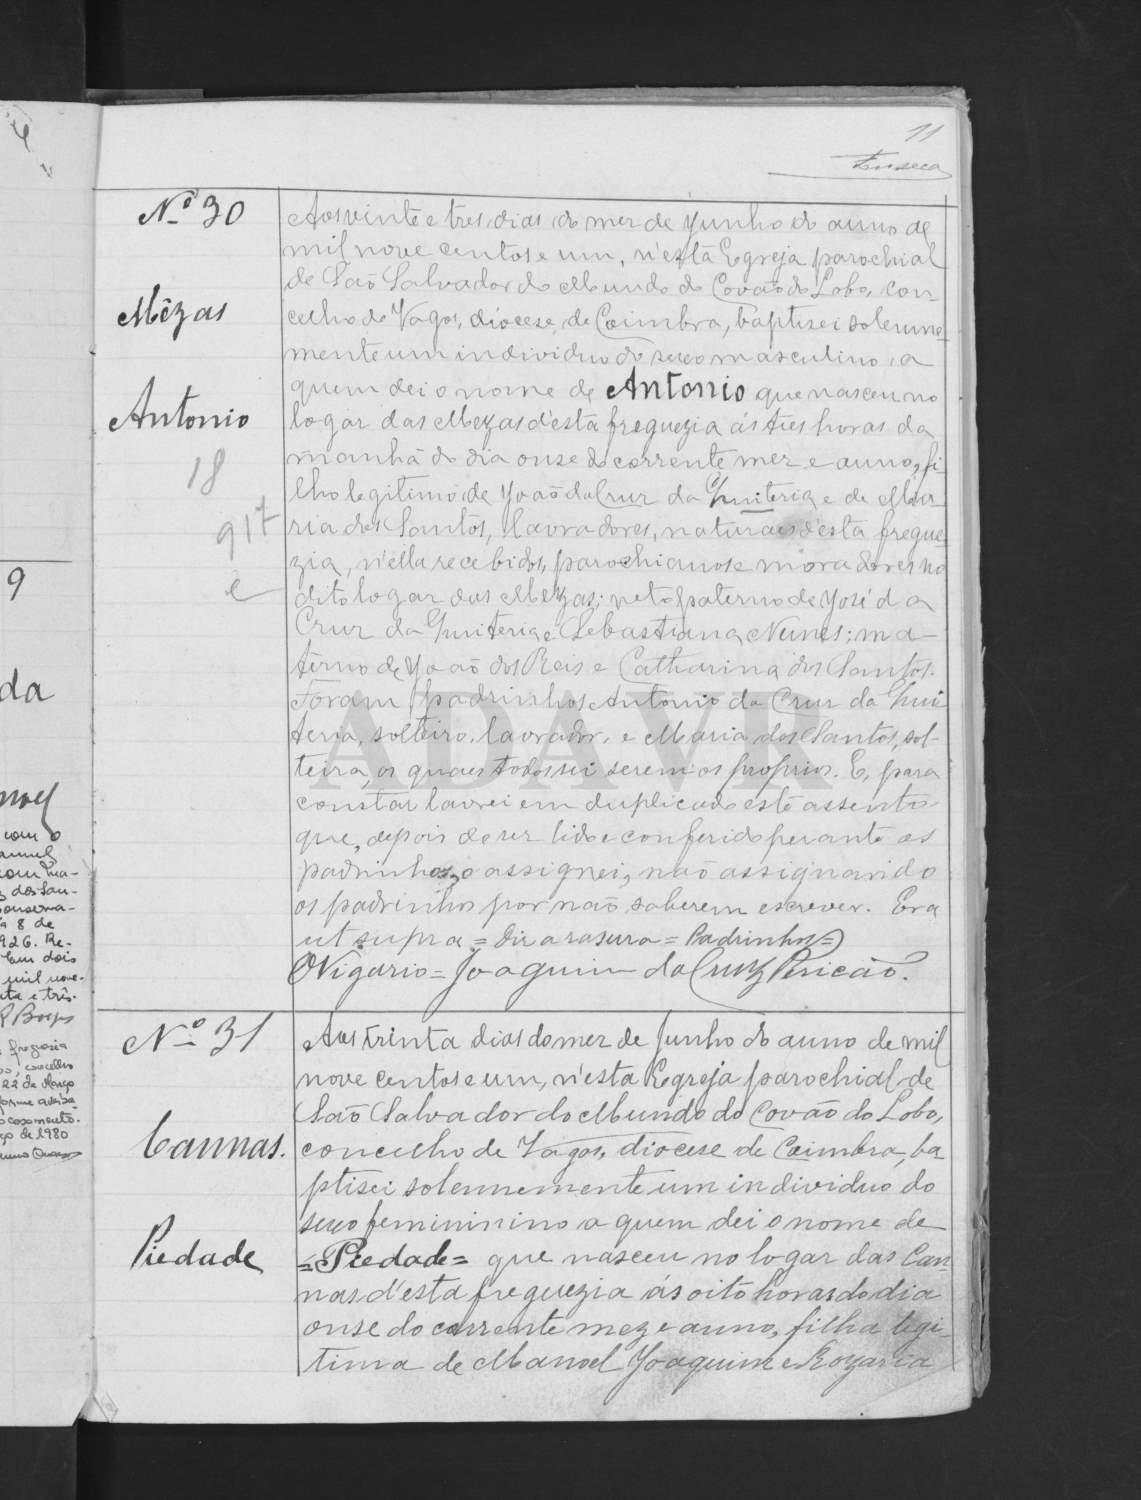 11
Fonseca
Nº 30
Mêzas
Antonio
18
917
e
Aos vinte e tres dias do mez de Junho do anno de
mil nove centos e um, n'esta Egreja parochial
de São Salvador do Mundo do Covão do Lobo, con-
celho de Vagos, diocese de Coimbra, baptisei solemne-
mente um individuo do sexo masculino, a
quem dei o nome de Antonio que nasceu no
logar das Mezas d'esta freguezia ás tres horas da
manhã do dia onse do corrente mez e anno, fi-
lho legitimo de João da Cruz da Quiteria e de Ma-
ria dos Santos, lavradores, naturaes d'esta fregue-
zia, n'ella recebidos, parochianos e moradores no
dito logar das Mezas; neto paterno de José da
Cruz da Quiteria e Sebastiana Nunes; ma-
terno de João dos Reis e Catharina dos Santos.
Foram padrinhos Antonio da Cruz da Qui-
teria, solteiro, lavrador, e Maria dos Santos, sol-
teira, os quaes todos sei serem os proprios. E, para
constar lavrei em duplicado este assento
que, depois de ser lido e conferido perante os
padrinhos, o assignei, não assignando
os padrinhos por não saberem escrever. Era
ut supra = Diz a rasura = Padrinhos =
O Vigario = Joaquim da Cruz Pericão.
Nº 31
Cannas.
Piedade
Aos trinta dias do mez de Junho do anno de mil
nove centos e um, n'esta Egreja parochial de
São Salvador do Mundo do Covão do Lobo,
concelho de Vagos, diocese de Coimbra, ba-
ptisei solemnemente um individuo do
sexo femininino a quem dei o nome de
= Piedade = que nasceu no logar das Can-
nas d'esta freguezia ás oito horas do dia
onse do corrente mez e anno, filha legi-
tima de Manoel Joaquim e Rozaria
9
da
com o
8 de
926. Re-
dois
mil nove-
e três.
freguesia
concelho
22 de Março
casamento.
de 1980
ADAVR